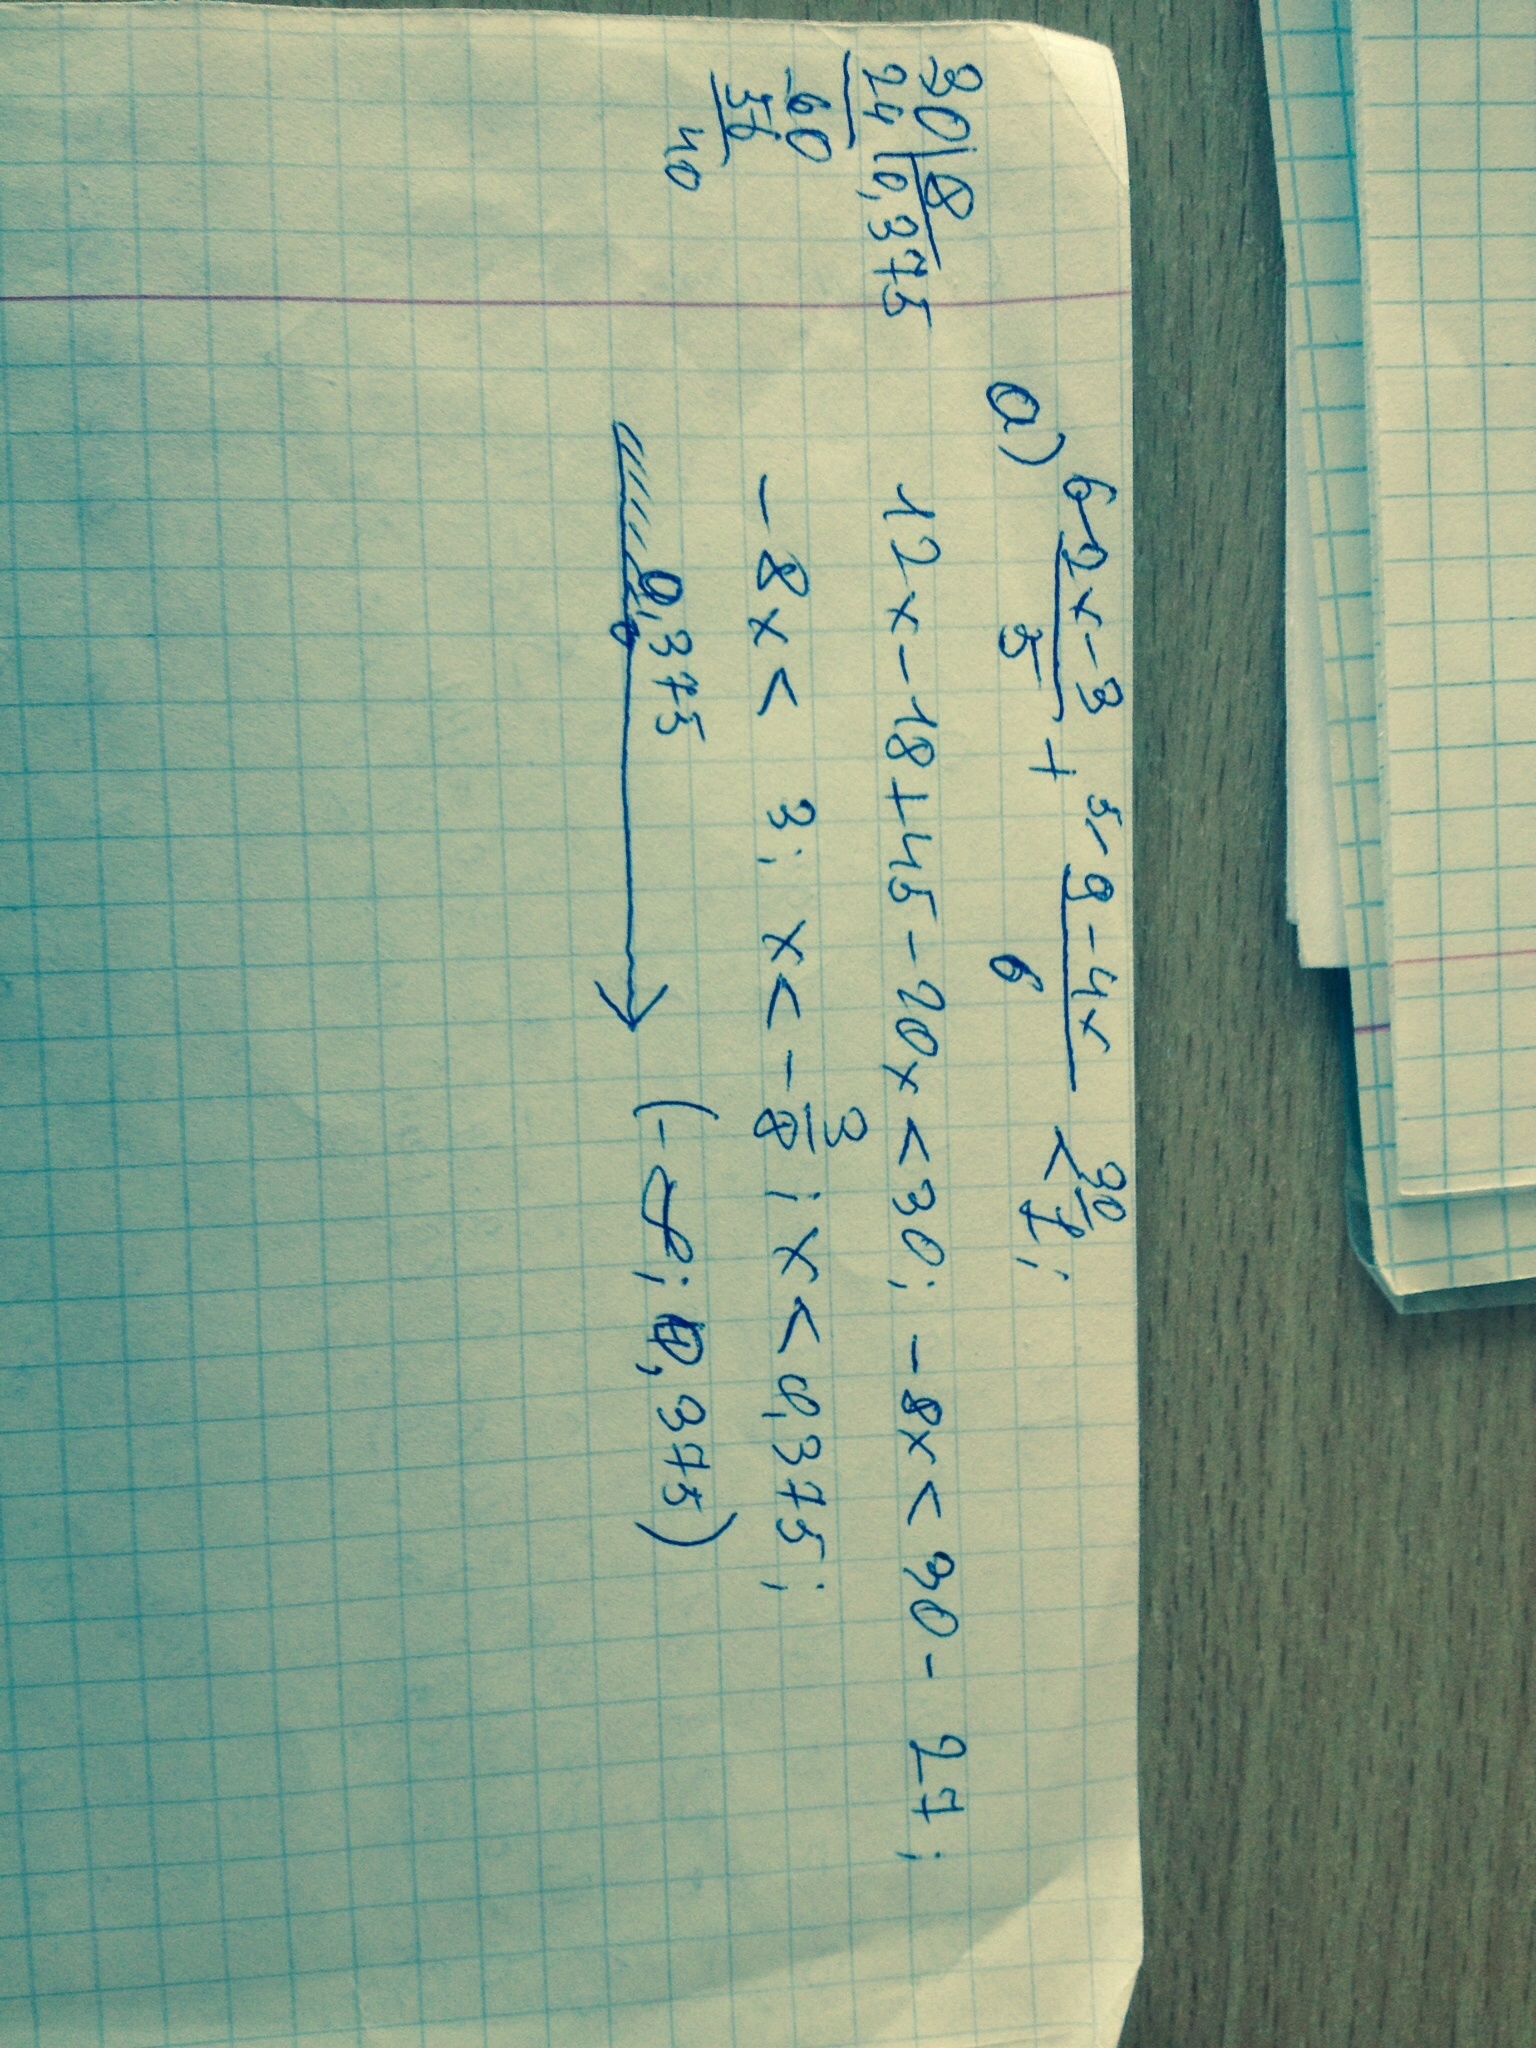 а) 6\ 2x-3/5 + 5\ 9-4x/6 < 30\ 1;
12x-18+45-20x<30; -8x<30-27;
-8x< 3; x<-3/8; x<0,375;
0,375
(-∞; 0,375)
30|8
24|0,375
-60
56
40